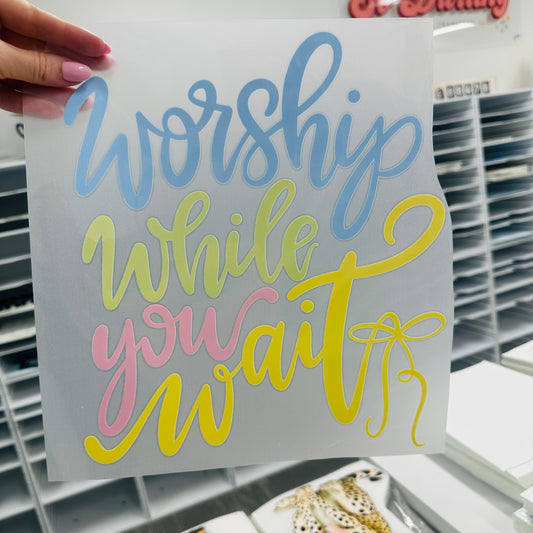 Worship
while
you
wait